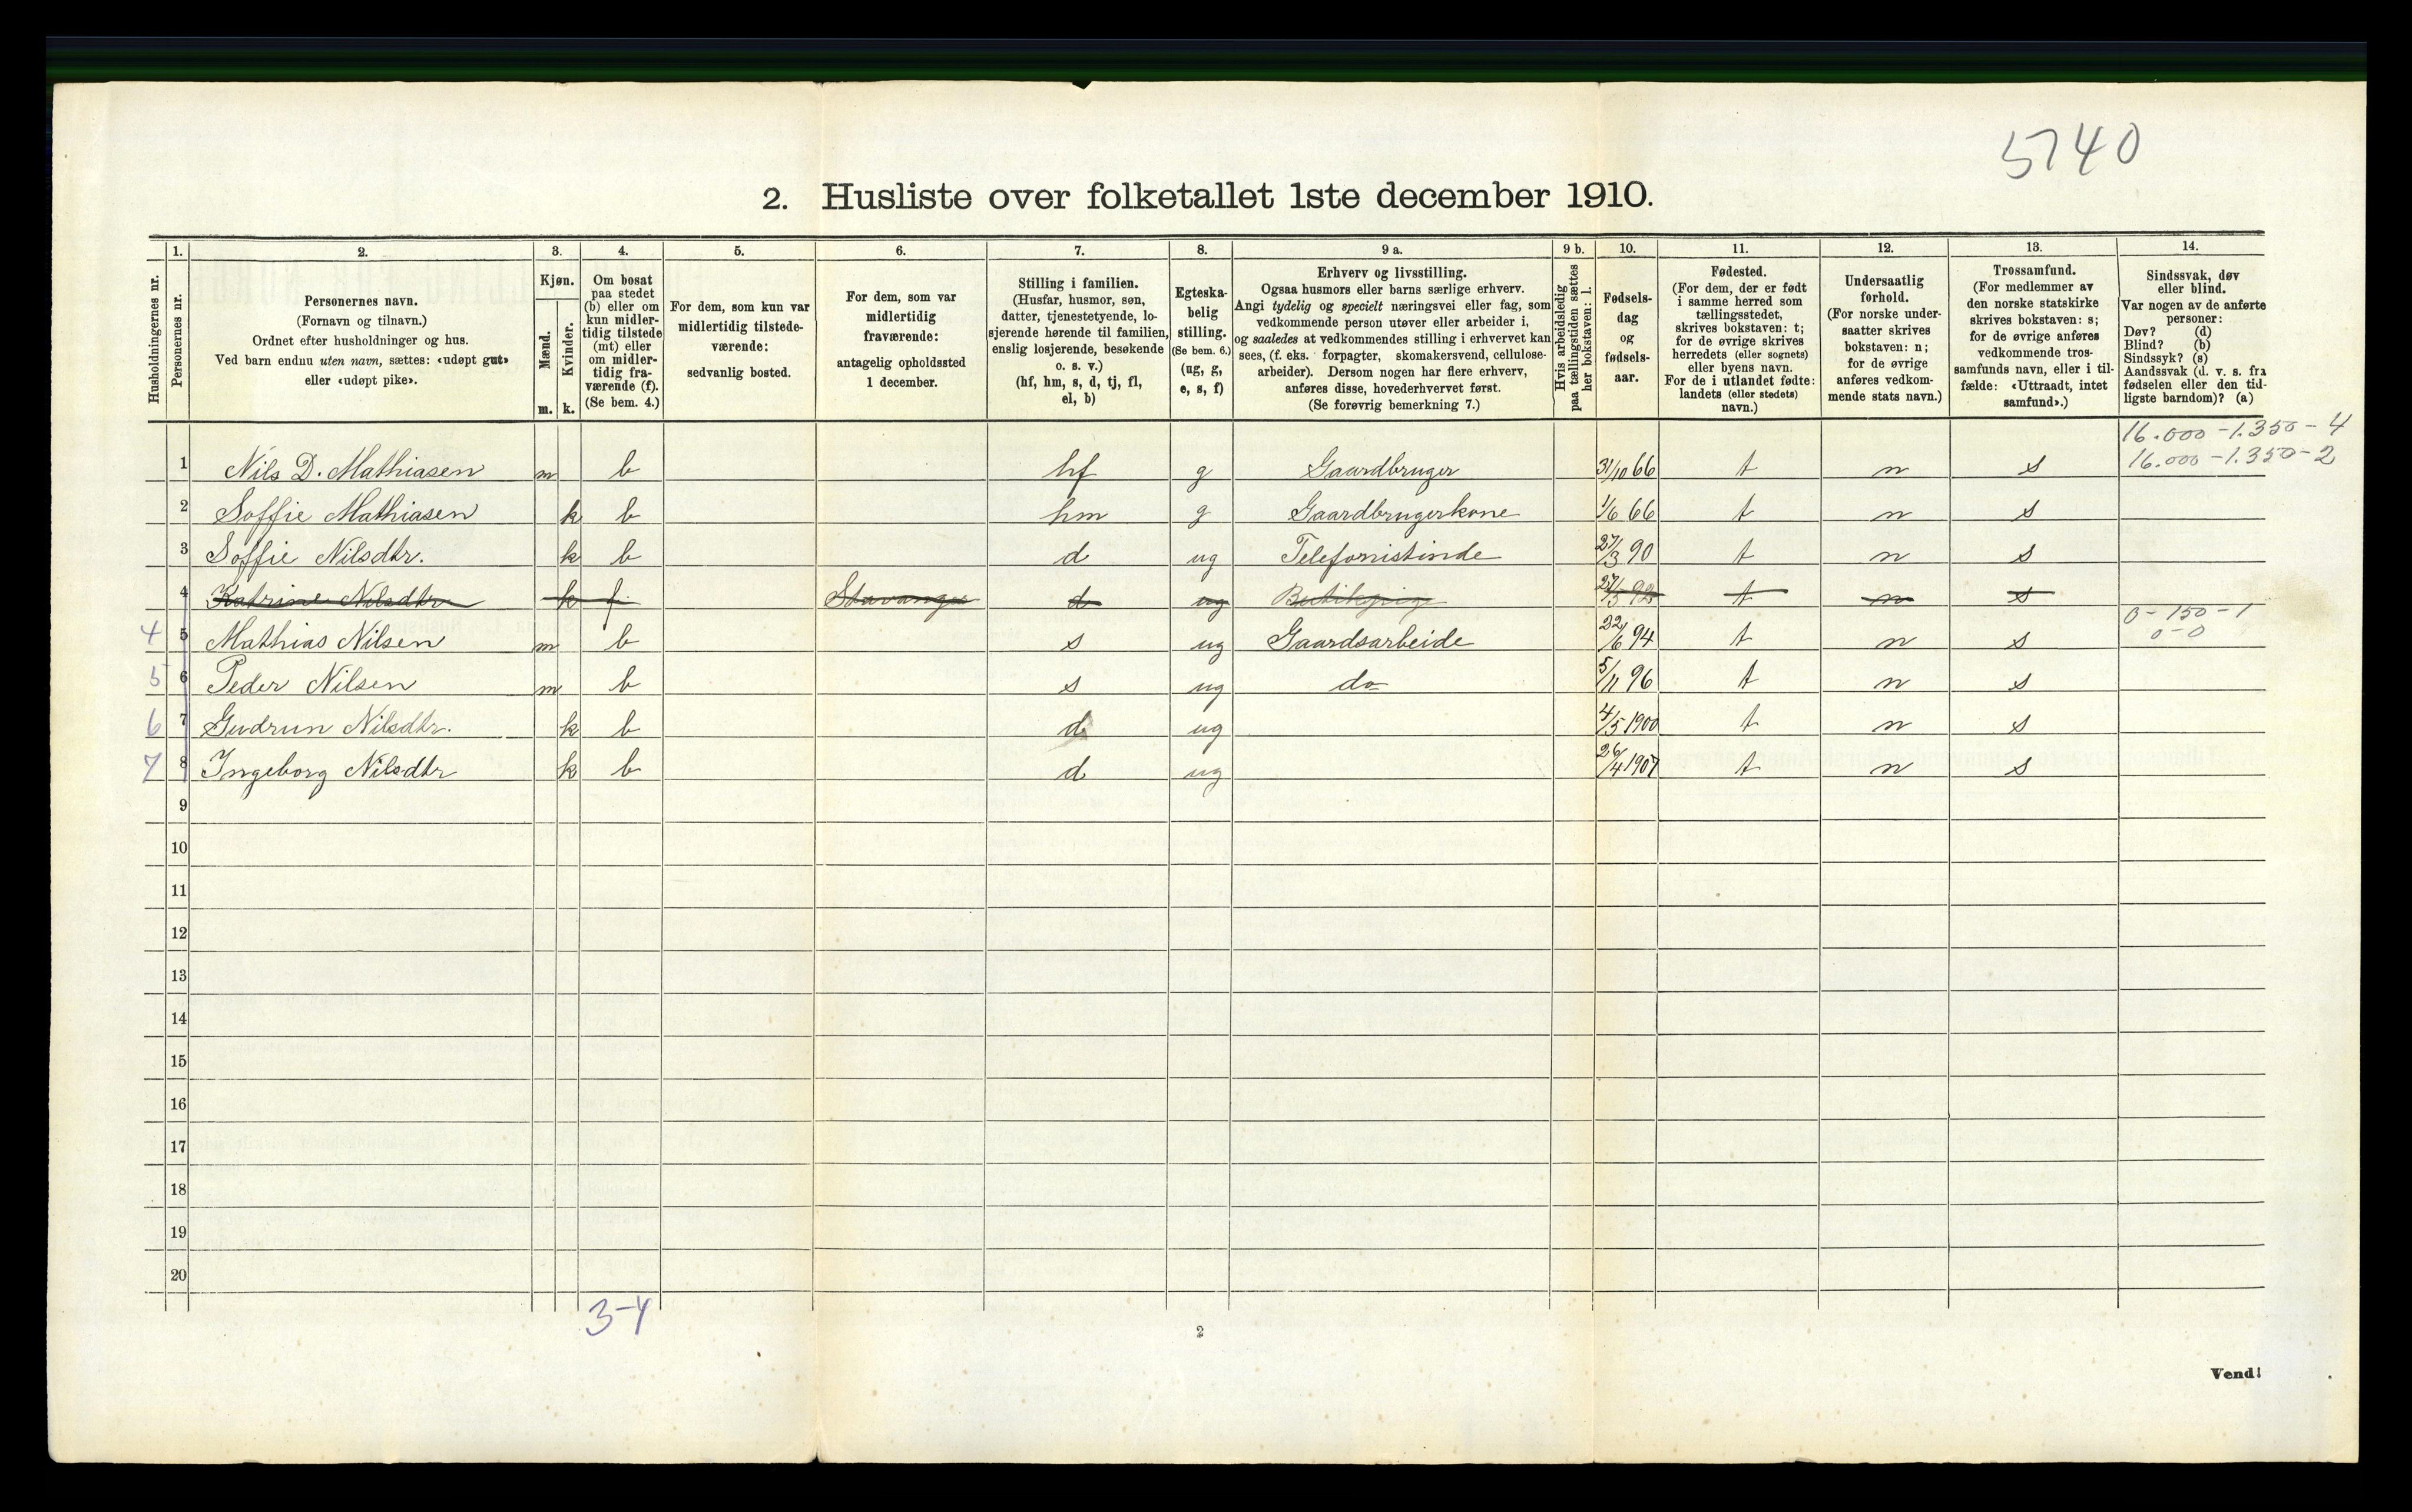 5740
2. Husliste over folketallet 1ste december 1910.
Husholdningernes nr.
1.
Personernes nr.
2.
Personernes navn.
(Fornavn og tilnavn.)
Ordnet efter husholdninger og hus.
Ved barn endnu uten navn, sættes: «udøpt gut»
eller «udøpt pike».
3.
Kjøn.
Mænd.
m.
Kvinder.
k.
4.
Om bosat
paa stedet
(b) eller om
kun midler-
tidig tilstede
(mt) eller
om midler-
tidig fra-
værende (f).
(Se bem. 4.)
5.
For dem, som kun var
midlertidig tilstede-
værende:
sedvanlig bosted.
6.
For dem, som var
midlertidig
fraværende:
antagelig opholdssted
1 december.
7.
Stilling i familien.
(Husfar, husmor, søn,
datter, tjenestetyende, lo-
sjerende hørende til familien,
enslig losjerende, besøkende
o. s. v.)
(hf, hm, s, d, tj, fl,
el, b)
8.
Egteska-
belig
stilling.
(Se bem. 6.)
(ug, g,
e, s, f)
9 a.
Erhverv og livsstilling.
Ogsaa husmors eller barns særlige erhverv.
Angi tydelig og specielt næringsvei eller fag, som
vedkommende person utøver eller arbeider i,
og saaledes at vedkommendes stilling i erhvervet kan
sees, (f. eks. forpagter, skomakersvend, cellulose-
arbeider). Dersom nogen har flere erhverv,
anføres disse, hovederhvervet først.
(Se forøvrig bemerkning 7.)
9 b.
Hvis arbeidsledig
paa tællingstiden sættes
her bokstaven: l.
10.
Fødsels-
dag
og
fødsels-
aar.
11.
Fødested.
(For dem, der er født
i samme herred som
tællingsstedet,
skrives bokstaven: t;
for de øvrige skrives
herredets (eller sognets)
eller byens navn.
For de i utlandet fødte:
landets (eller stedets)
navn.)
12.
Undersaatlig
forhold.
(For norske under-
saatter skrives
bokstaven: n;
for de øvrige
anføres vedkom-
mende stats navn.)
13.
Trossamfund.
(For medlemmer av
den norske statskirke
skrives bokstaven: s;
for de øvrige anføres
vedkommende tros-
samfunds navn, eller i til-
fælde: «Uttraadt, intet
samfund».)
14.
Sindssvak, døv
eller blind.
Var nogen av de anførte
personer:
Døv? (d)
Blind? (b)
Sindssyk? (s)
Aandssvak (d. v. s. fra
fødselen eller den tid-
ligste barndom)? (a)
16.000 - 1.350 - 4
16.000 - 1.350 - 2
1 Nils D. Mathiasen m b hf g Gaardbruger 31/10 66 t n s
2 Soffie Mathiasen k b hm g Gaardbrugerkone 1/6 66 t n s
3 Soffie Nilsdtr. k b d ug Telefonistinde 27/3 90 t n s
4 Katrine Nilsdtr k f Stavanger d ug Butikpige 27/5 92 t n s
0 - 150 - 1
0 - 0
4 5 Mathias Nilsen m b s ug Gaardsarbeide 22/6 94 t n s
5 6 Peder Nilsen m b s ug do 5/11 96 t n s
6 7 Gudrun Nilsdtr. k b d ug 4/5 1900 t n s
7 8 Ingeborg Nilsdtr k b d ug 26/4 1907 t n s
9
10
11
12
13
14
15
16
17
18
19
20
3-4
2
Vend!